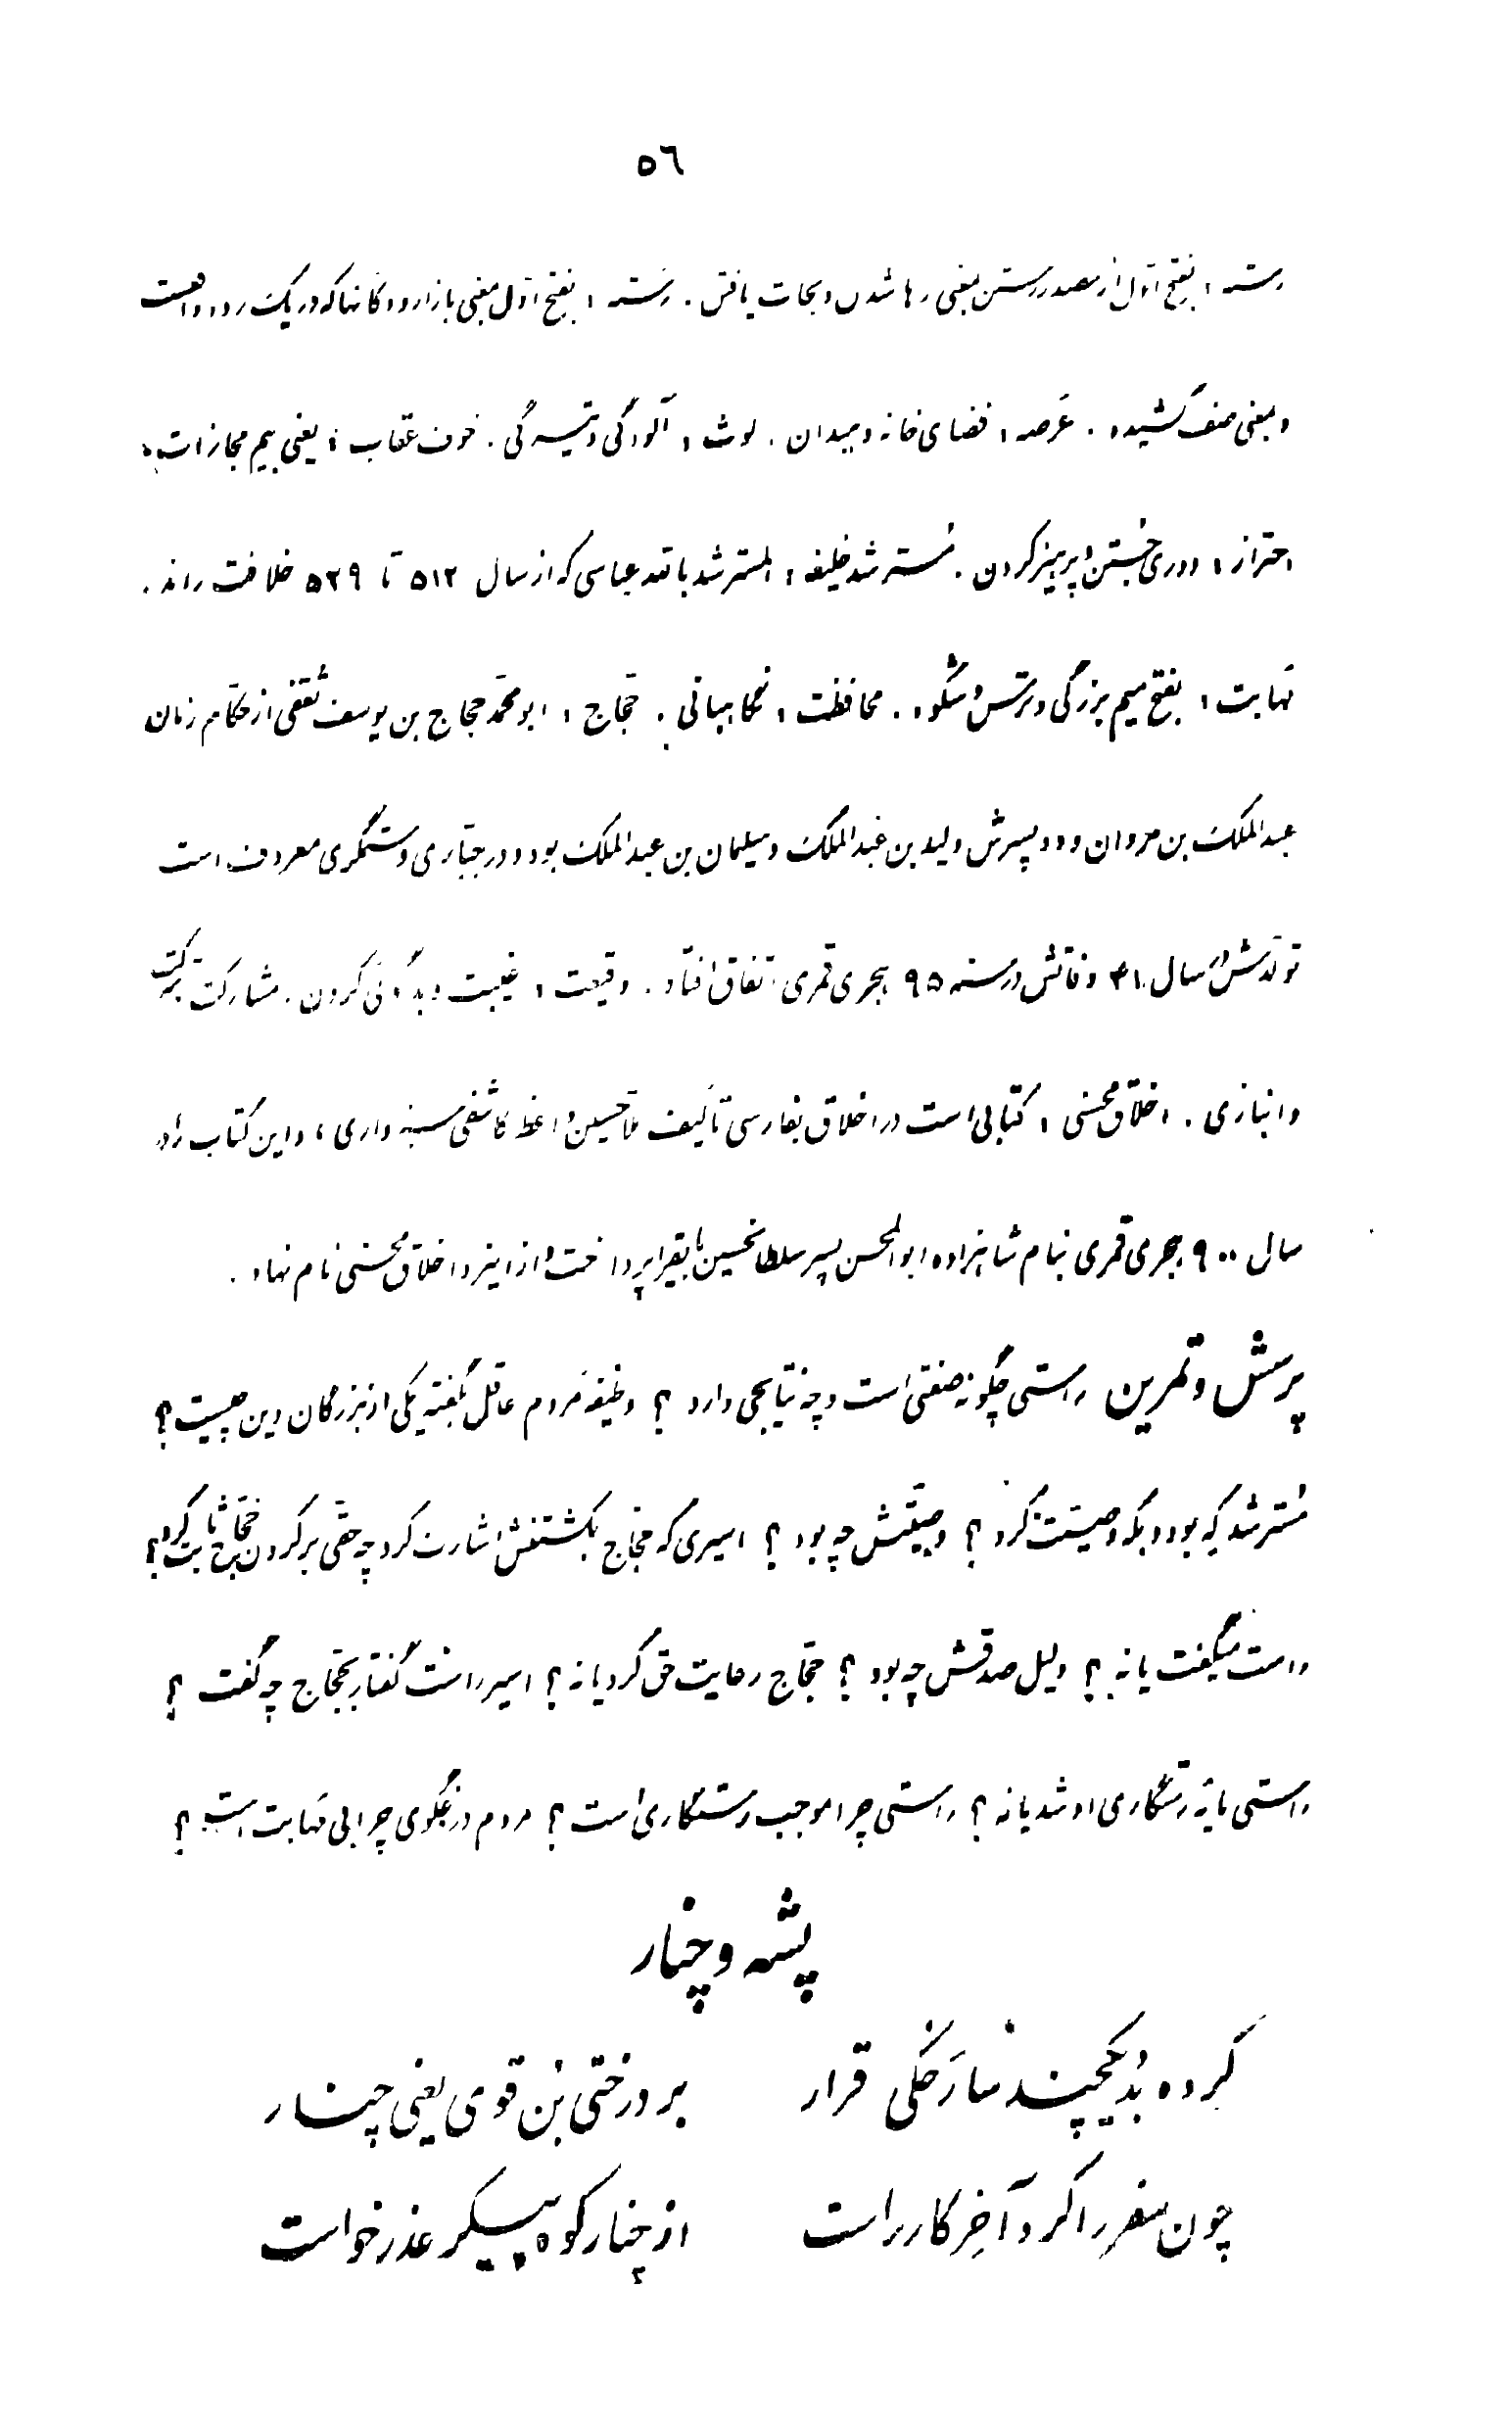 ٥٦
رسته ، بفتح اول از مصدر رستن بمعنی رها شدن و نجات یافتن . رسته ، بفتح اول بمعنی بازار و دکانها که در یک رده واقعست
و بمعنی صف کشیده . عَرصه ، فضای خانه و میدان . لوث ، آلودگی و تیرگی . خوف عقاب ، یعنی بیم مجازات .
احتراز ، دوری جستن و پرهیز کردن . مُسترشد خلیفه ، المسترشد بالله عباسی که از سال ٥١٢ تا ٥٢٩ خلافت راند .
مَهابت ، بفتح میم بزرگی و ترس و شکوه . محافظت ، نگاهبانی . حجّاج ، ابومحمّد حجاج بن یوسف ثقفی از حکّام زمان
عبدالملک بن مروان و دو پسرش ولید بن عبدالملک و سلیمان بن عبدالملک بود و در جبّاری و ستمگری معروف است
تولّدش در سال ٤١ و وفاتش در سنه ٩٥ هجری قمری اتفاق افتاد . وقیعت ، غیبت و بدگوئی کردن . مشارکت ، شرکت
و انبازی . اخلاق محسنی ، کتابی است در اخلاق بفارسی تألیف ملاحسین واعظ کاشفی سبزواری ، و این کتاب را در
سال ٩٠٠ هجری قمری بنام شاهزاده ابوالمحسن پسر سلطانحسین بایقرا پرداخت و از اینرو اخلاق محسنی نام نهاد .
پرسش و تمرین راستی چگونه صفتی است و چه نتایجی دارد ؟ وظیفهٔ مردم عاقل بگفتهٔ یکی از بزرگان دین چیست ؟
مُسترشد که بود و بکه وصیّت کرد ؟ وصیّتش چه بود ؟ اسیری که حجّاج بکشتنش اشارت کرد چه حقّی بر گردن حجّاج ثابت کرد ؟
راست میگفت یا نه ؟ دلیل صدقش چه بود ؟ حجّاج رعایت حق کرد یا نه ؟ اسیر راست گفتار بحجّاج چه گفت ؟
راستی مایهٔ رستگاری او شد یا نه ؟ راستی چرا موجب رستگاری است ؟ مردم دروغگوی چرا بی مَهابت است ؟
پشه و چنار
کرده بُد یکچند سارَخکی قرار بر درختی بُن قوی یعنی چنار
چون سفر را کرد آخِر کار راست از چنار کوه پیکر عذر خواست